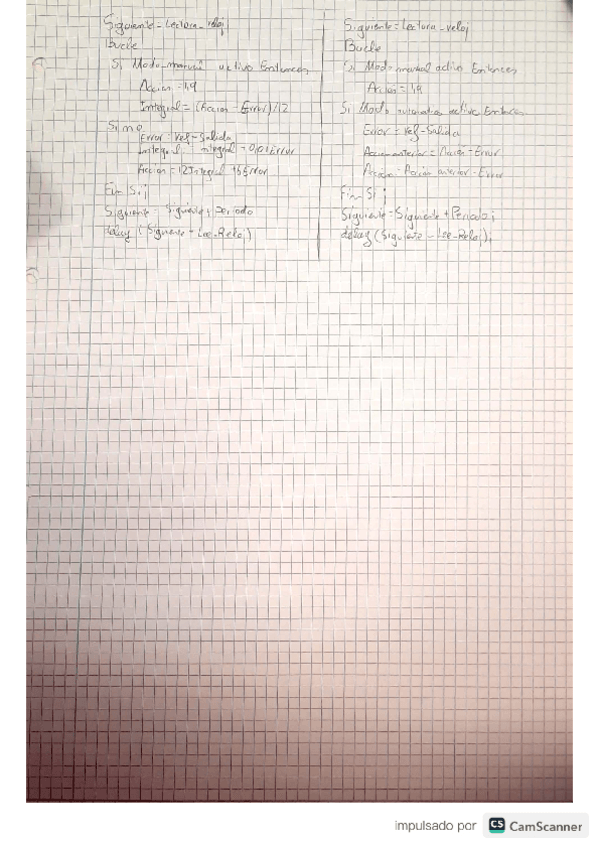 Siguiente = Lectura_reloj
Bucle
Si Modo_manual activo Entonces
Accion = 1,9
Integral = (Accion - Error)/12
Si no
Error = ref - Salida
Integral = Integral + 0,01 Error
Accion = 12 Integral + 5 Error
Fin Si;
Siguiente = Siguiente + Periodo
delay (Siguiente - Lee_Reloj)
Siguiente = Lectura_reloj
Bucle
Si Modo manual activo Entonces
Accion = 1,9
Si Modo automatico activo Entonces
Error = ref - Salida
Accion anterior = Accion - Error
Accion = Accion anterior - Error
Fin Si;
Siguiente = Siguiente + Periodo;
delay (Siguiente - Lee_Reloj);
impulsado por CS CamScanner